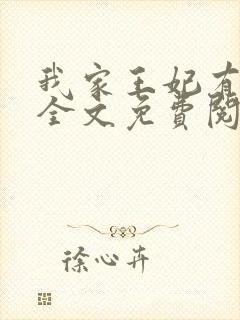 我家王妃有
全文免费阅
徐心卉